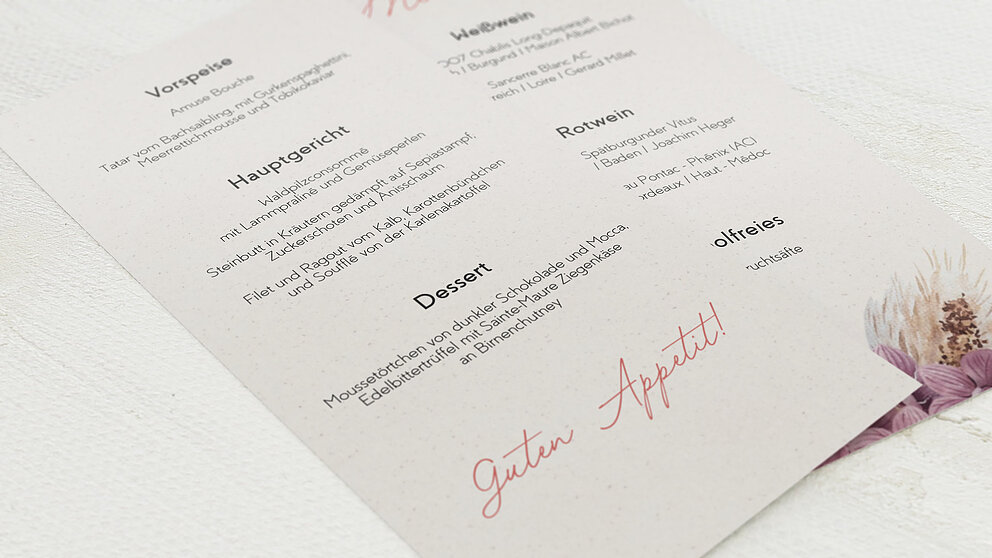 Vorspeise
Amuse Bouche
Tatar vom Bachsaibling, mit Gurkenspaghettini,
Meerrettichmousse und Tobikokaviar
Hauptgericht
Waldpilzconsommé
mit Lammpraliné und Gemüseperlen
Steinbutt in Kräutern gedämpft auf Sepiastampf,
Zuckerschoten und Anisschaum
Filet und Ragout vom Kalb, Karottenbündchen
und Soufflé von der Karlenakartoffel
Dessert
Moussetörtchen von dunkler Schokolade und Mocca,
Edelbittertrüffel mit Sainte-Maure Ziegenkäse
an Birnenchutney
Guten Appetit!
Weißwein
007 Chablis Long-Depaquit
/ Burgund / Maison Albert Bichot
Sancerre Blanc AC
reich / Loire / Gerard Millet
Rotwein
Spätburgunder Vitus
/ Baden / Joachim Heger
au Pontac - Phénix (AC)
ordeaux / Haut - Médoc
olfreies
ruchtsäfte